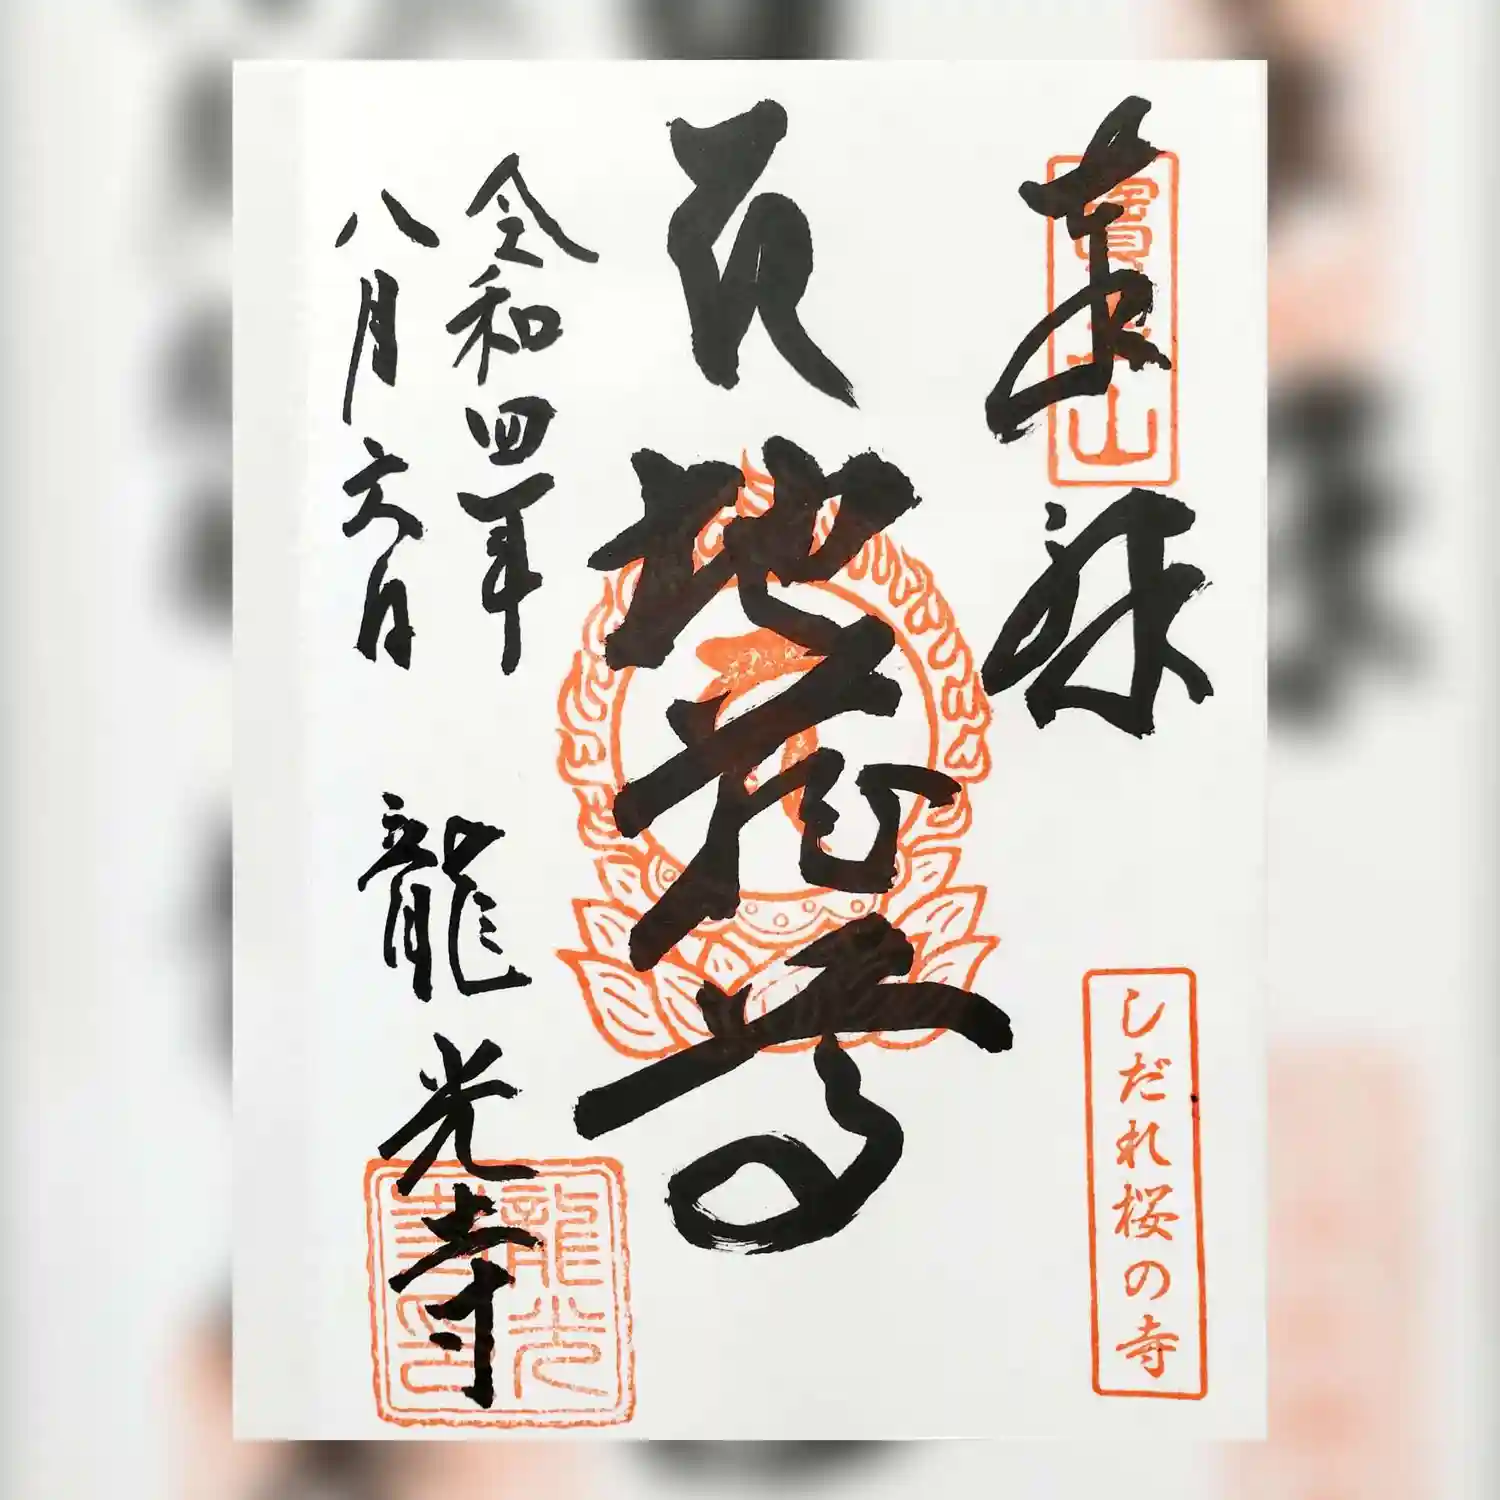 奉拝
しだれ桜の寺
地蔵尊
令和四年
八月六日
龍光寺
龍光
寺印